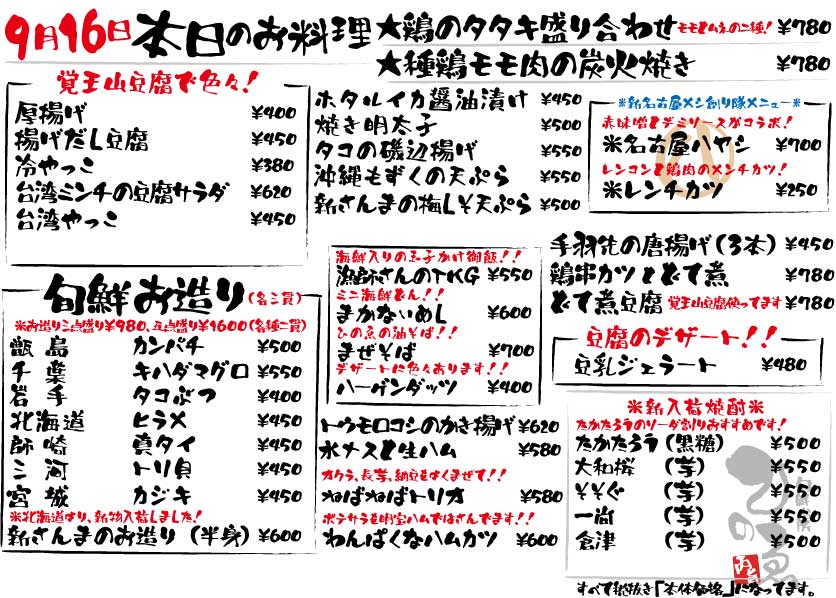 9月16日 本日のお料理
★鶏のタタキ盛り合わせ モモとムネの二種! ¥780
★種鶏モモ肉の炭火焼き ¥780
覚王山豆腐で色々!
厚揚げ ¥400
揚げだし豆腐 ¥450
冷やっこ ¥380
台湾ミンチの豆腐サラダ ¥620
台湾やっこ ¥450
ホタルイカ醤油漬け ¥450
焼き明太子 ¥500
タコの磯辺揚げ ¥550
沖縄もずくの天ぷら ¥550
新さんまの梅しそ天ぷら ¥500
※新名古屋メシ創り隊メニュー※
赤味噌とデミソースがコラボ!
※名古屋ハヤシ ¥700
レンコンと鶏肉のメンチカツ!
※レンチカツ ¥250
旬鮮お造り(各三貫)
※お造り三点盛り¥980、五点盛り¥1600(各種二貫)
甑島 カンパチ ¥500
千葉 キハダマグロ ¥550
岩手 タコぶつ ¥400
北海道 ヒラメ ¥450
師崎 真タイ ¥450
三河 トリ貝 ¥450
宮城 カジキ ¥450
※北海道より、新物入荷しました!
新さんまのお造り(半身) ¥600
海鮮入りの玉子かけ御飯!!
漁師さんのTKG ¥550
ミニ海鮮どん!!
まかないめし ¥600
ひの魚の油そば!!
まぜそば ¥700
デザートに色々あります!!
ハーゲンダッツ ¥400
トウモロコシのかき揚げ ¥620
水ナスと生ハム ¥580
オクラ、長芋、納豆をよくまぜて!!
ねばねばトリオ ¥580
ポテサラを明宝ハムではさんでます!!
わんぱくなハムカツ ¥600
手羽先の唐揚げ(3本) ¥450
鶏串カツとどて煮 ¥780
どて煮豆腐 覚王山豆腐使ってます ¥780
豆腐のデザート!!
豆乳ジェラート ¥480
※新入荷焼酎※
たかたろうのソーダ割りおすすめです!
たかたろう(黒糖) ¥500
大和桜(芋) ¥550
そそぐ(芋) ¥500
一尚(芋) ¥500
倉津(芋) ¥500
すべて税抜き「本体価格」になってます。